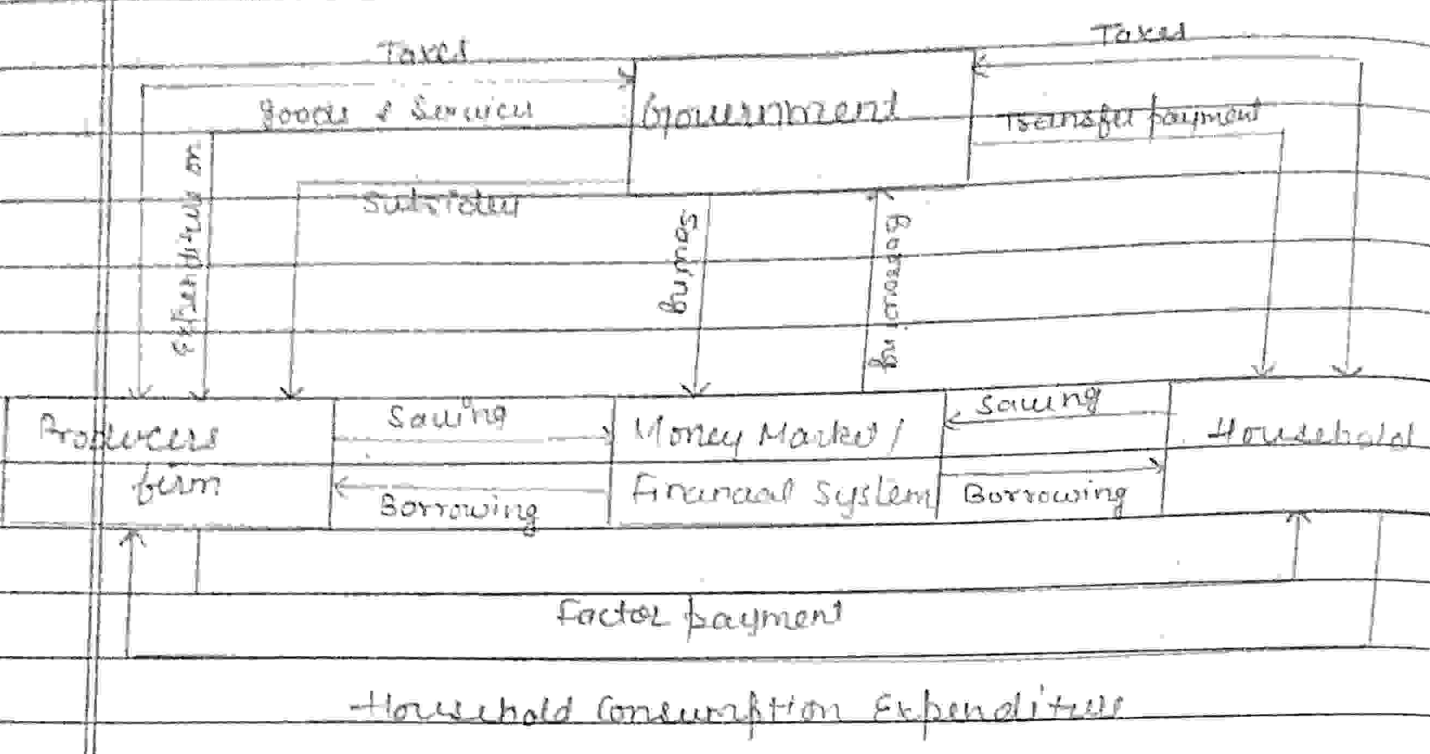 Taxes
Taxes
Goods & Services
Government
Transfer payment
Subsidies
Expenditure on
Saving
Borrowing
Producers
firm
Saving
Borrowing
Money Market /
Financial System
Saving
Borrowing
Household
Factor payment
Household Consumption Expenditure